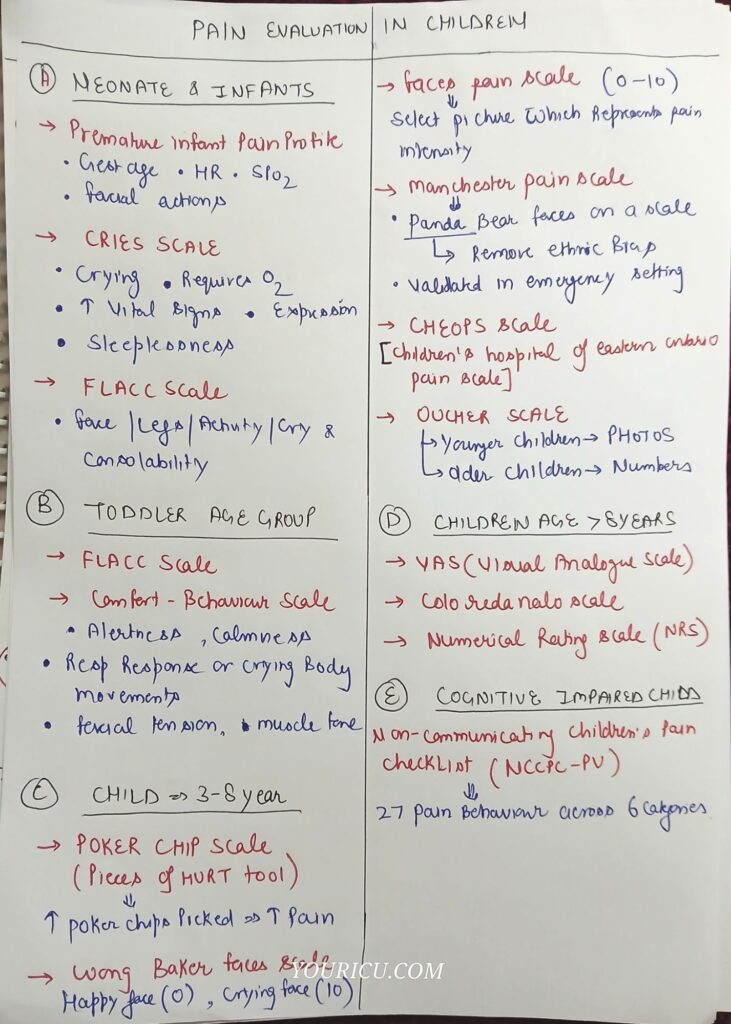 PAIN EVALUATION IN CHILDREN
(A) NEONATE & INFANTS
→ Premature infant Pain Profile
• Gest age • HR • SPO2
• facial actions
→ CRIES SCALE
• Crying • Requires O2
• ↑ Vital signs • Expression
• Sleeplessness
→ FLACC Scale
• face / Legs / Activity / Cry &
Consolability
(B) TODDLER AGE GROUP
→ FLACC Scale
→ Comfort - Behaviour scale
• Alertness, Calmness
• Resp Response or crying Body
movements
• facial tension, • muscle tone
(C) CHILD ⇒ 3-8 year
→ POKER CHIP Scale
(Pieces of HURT tool)
⇓
↑ poker chips Picked ⇒ ↑ Pain
→ Wong Baker faces scale
Happy face (0), Crying face (10)
→ faces pain scale (0-10)
⇓
Select picture which Represents pain
intensity
→ Manchester pain scale
⇓
• Panda Bear faces on a scale
↳ Remove ethnic Bias
• Validated in emergency setting
→ CHEOPS scale
[Children's hospital of eastern ontario
pain scale]
→ OUCHER SCALE
↳ Younger children → PHOTOS
↳ older children → Numbers
(D) CHILDREN AGE > 8 YEARS
→ VAS (Visual Analogue scale)
→ Coloredanalo scale
→ Numerical Rating scale (NRS)
(E) COGNITIVE IMPAIRED CHILD
Non-communicating children's Pain
checklist (NCCPC-PV)
⇓
27 pain Behaviour across 6 categories
YOURICU.COM